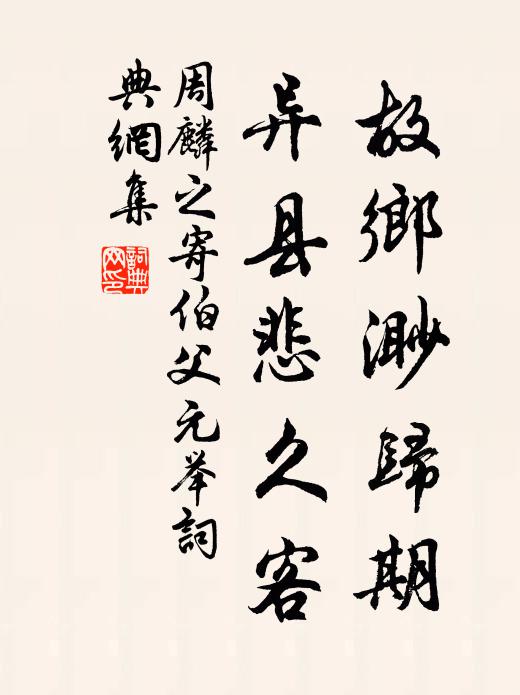 故鄉渺歸期
异县悲久客
周麟之寄伯父元举詞
典網集
詞典
网印